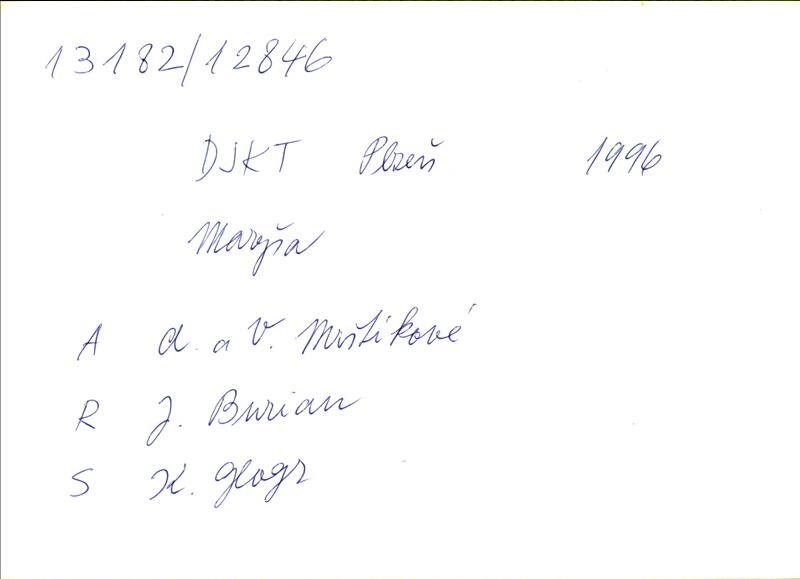 13182/12846
DJKT Plzeň 1996
Maryša
A A. a V. Mrštíkové
R J. Burian
S K. Glogr